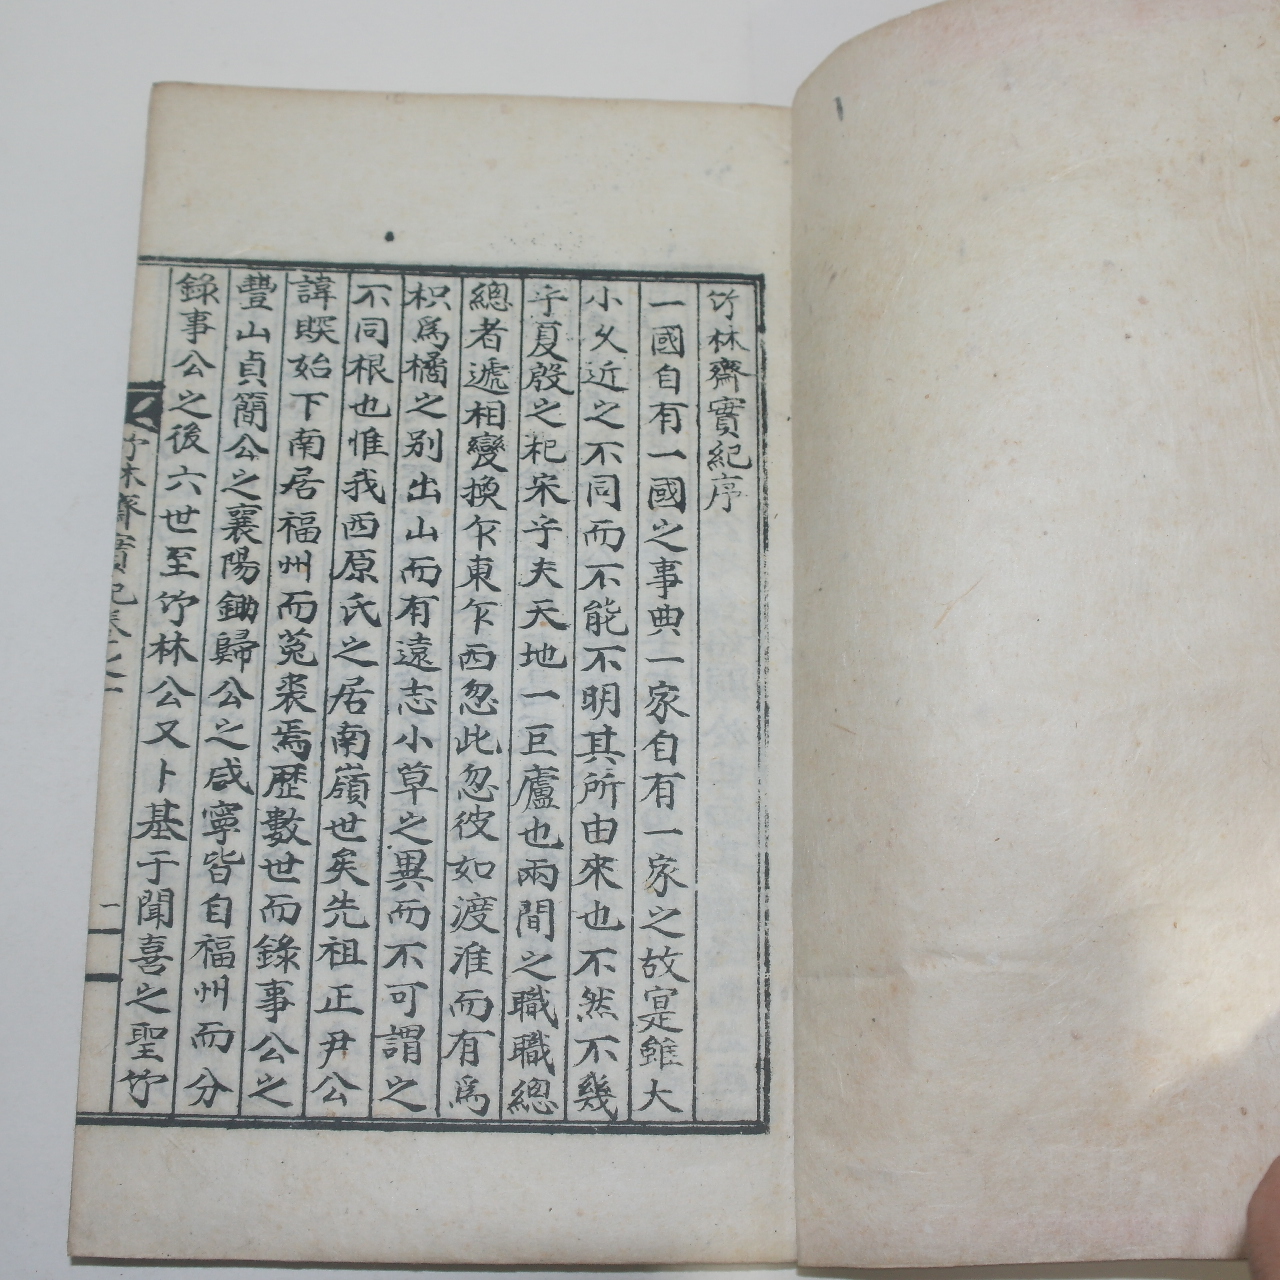 竹林齋實紀序
一國自有一國之事典一家自有一家之故寔雖大
小久近之不同而不能不明其所由來也不然不幾
乎夏殷之杞宋乎夫天地一巨廬也兩間之職職總
總者遞相變換乍東乍西忽此忽彼如渡淮而有爲
枳爲橘之別出山而有遠志小草之異而不可謂之
不同根也惟我西原氏之居南嶺世矣先祖正尹公
諱䁐始下南居福州而菟裘焉歷數世而錄事公之
豐山貞簡公之襄陽鋤歸公之咸寧皆自福州而分
錄事公之後六世至竹林公又卜基于聞喜之聖竹
竹林齋實紀卷之一
一